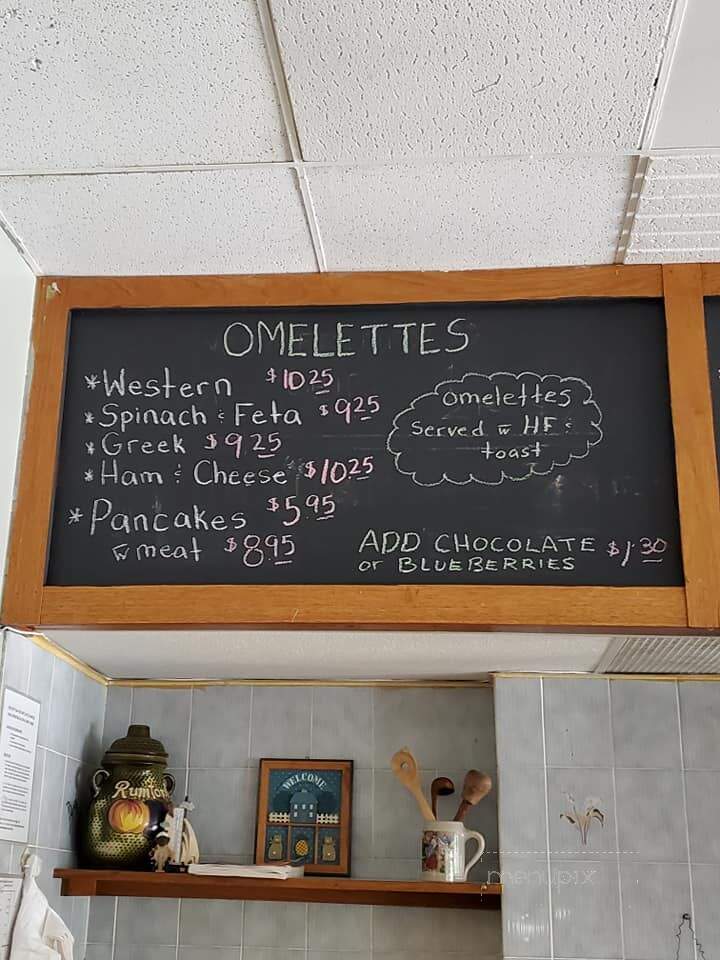 OMELETTES
*Western $10.25
*Spinach & Feta $9.25
*Greek $9.25
*Ham & Cheese $10.25
*Pancakes $5.95
w meat $8.95
Omelettes
Served w HF &
toast
ADD CHOCOLATE $1.30
or BLUEBERRIES
WELCOME
menupix